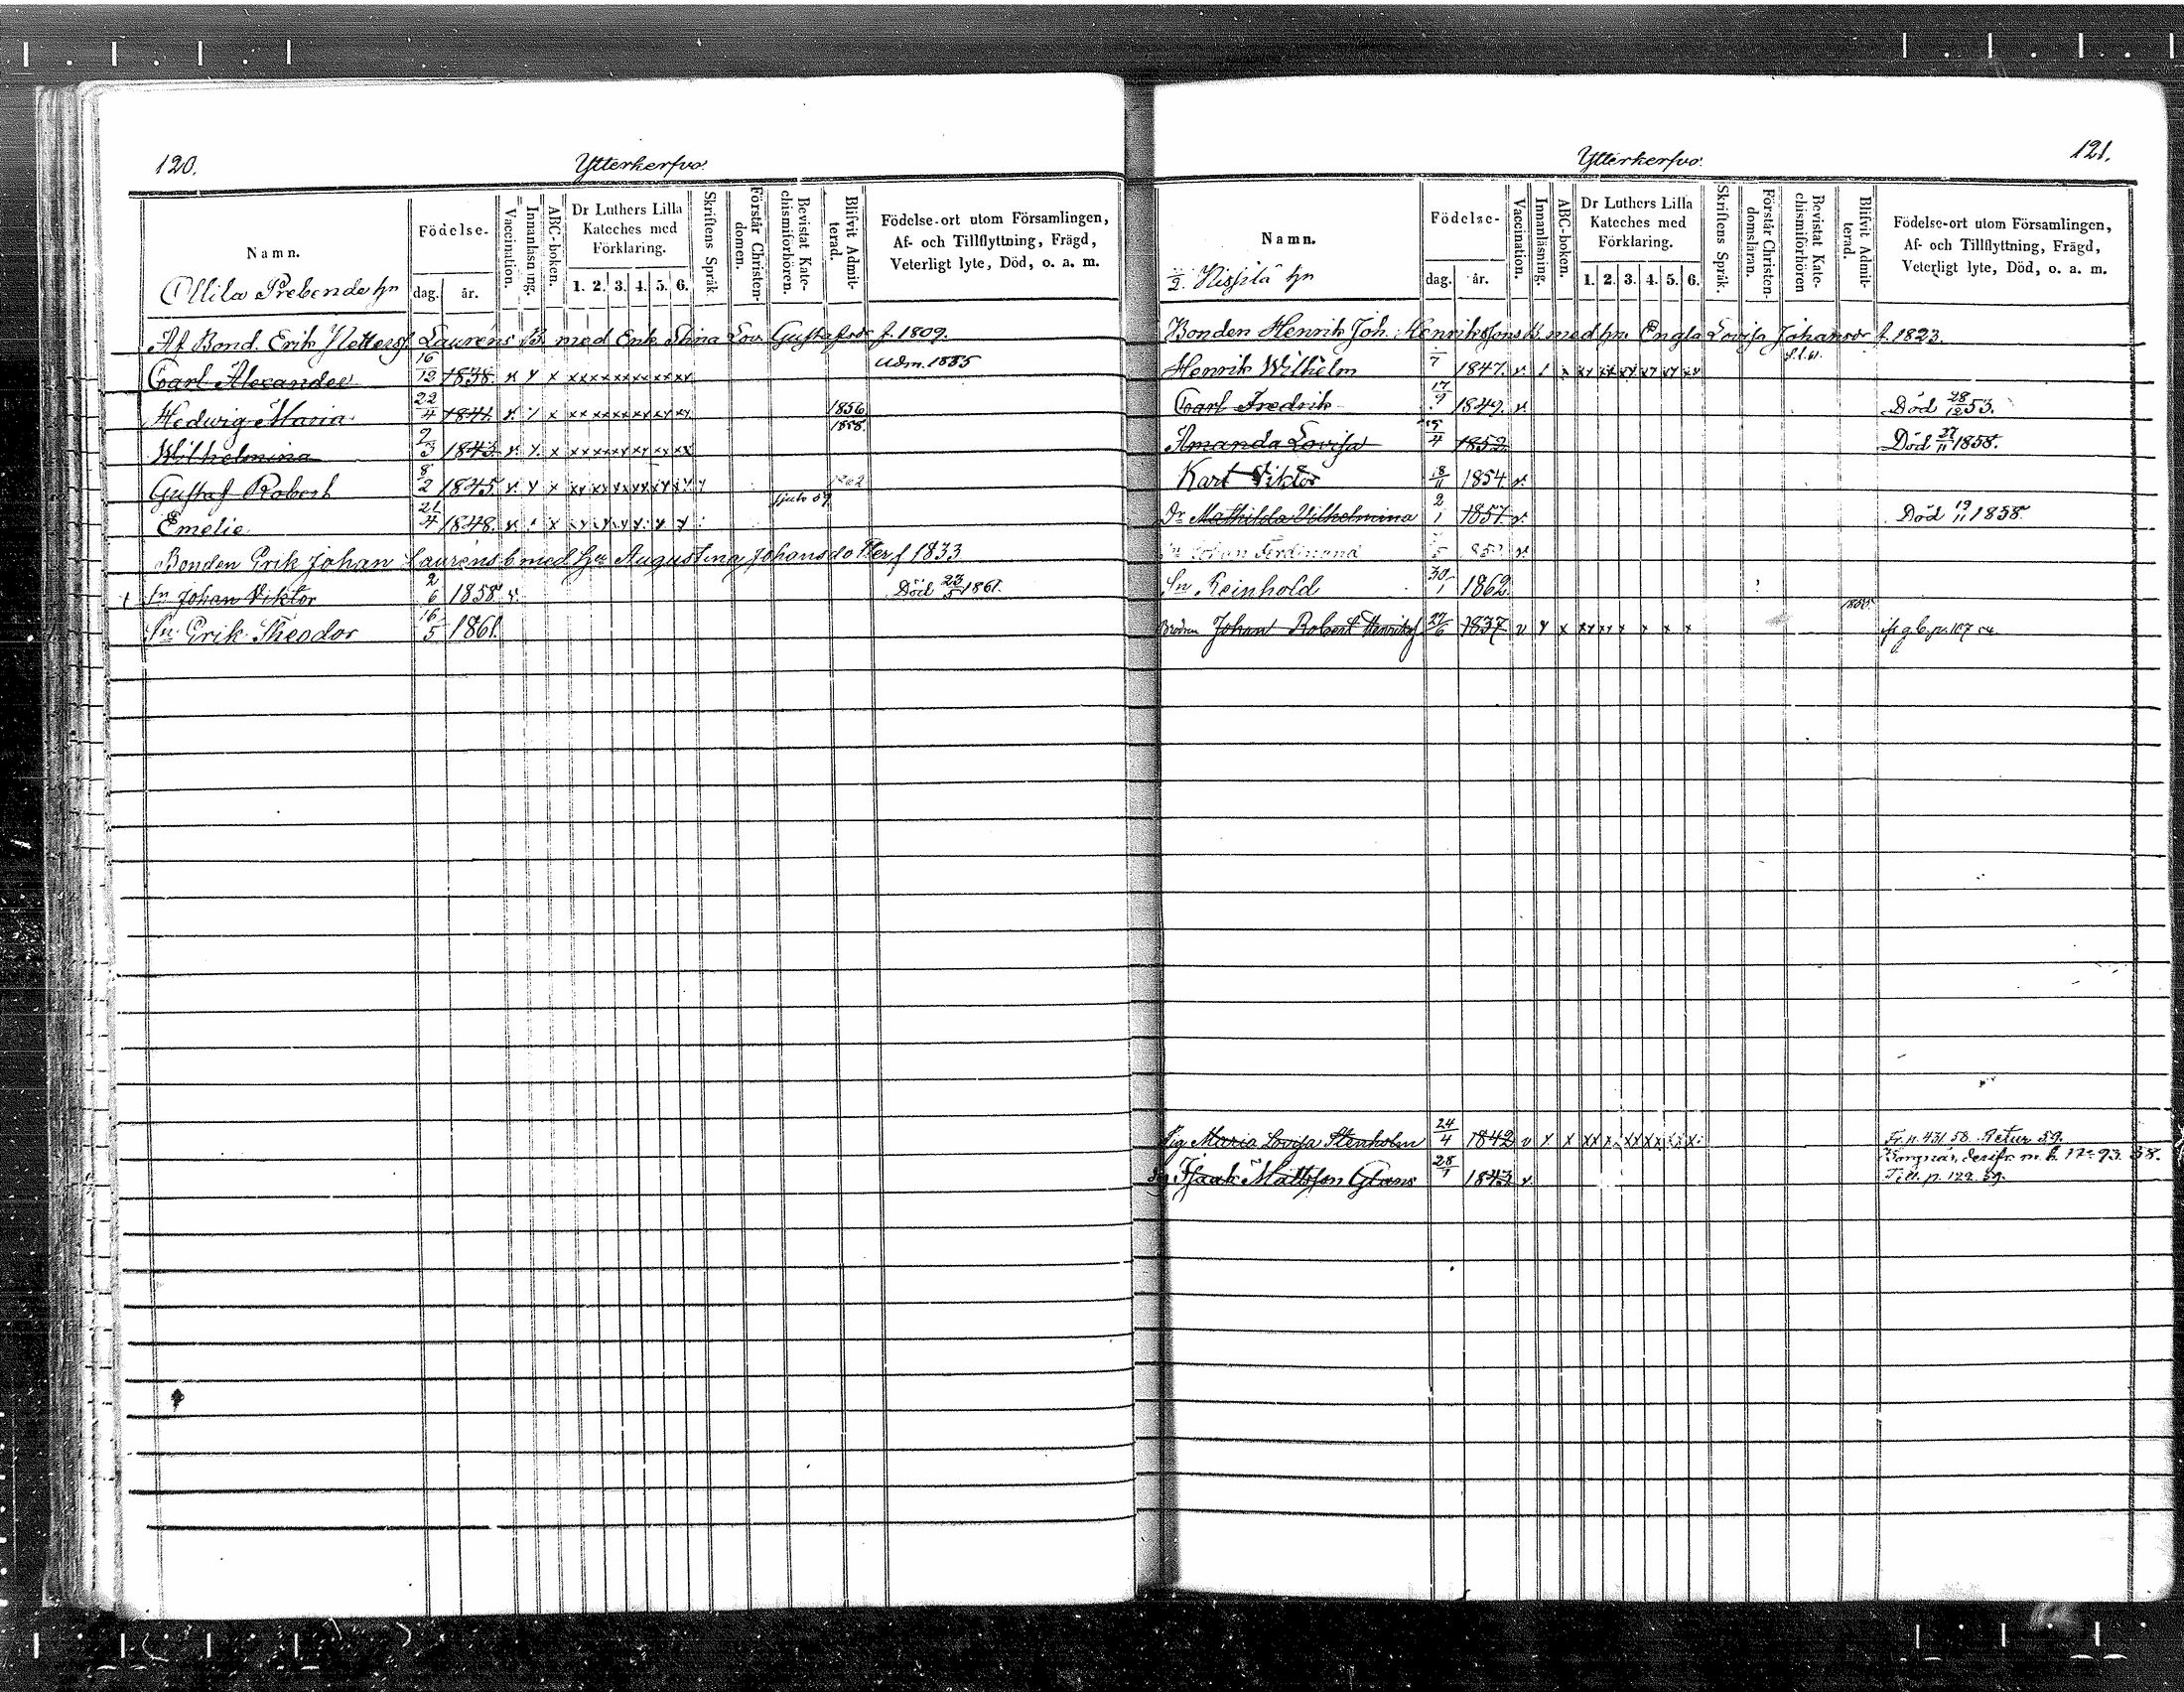 120.
Ytterkerfvo.
Namn.
Födelse.
dag. år.
Vaccination.
Innanläsning.
ABC-boken.
Dr Luthers Lilla Kateches med Förklaring.
1. 2. 3. 4. 5. 6.
Skriftens Språk.
Förstår Christendomen.
Bevistat Katechismiförhören.
Blifvit Admitterad.
Födelse-ort utom Församlingen,
Af- och Tillflyttning, Frägd,
Veterligt lyte, Död, o. a. m.
Ollila Prebende hn
Af Bond. Erik Lauréns B. med Enk. Stina Lov. Gustafsdr f. 1809.
Carl Alexander 16/12 1838. v. x x xx xx xx xx xx xx Adm. 1855
Hedwig Maria 22/4 1841. v. x x xx xx xx xx xx xx 1856
Wilhelmina 2/3 1843. v. x. x xx xx xx xx xx xx 1858.
Gustaf Robert 8/2 1845 v. x x xx xx xx xx xx xx x
Emelie 21/4 1848. v.
Bonden Erik Johan Laurens b. med Hu Augustina Johansdotter f 1833
Sn Johan Viktor 2/6 1858 v. Död 23/5 1861.
Sn Erik Theodor 16/5 1861.
121.
Ytterkerfvo.
Namn.
Födelse-
dag. år.
Vaccination.
Innanläsning.
ABC-boken.
Dr Luthers Lilla Kateches med Förklaring.
1. 2. 3. 4. 5. 6.
Skriftens Språk.
Förstår Christendomsläran.
Bevistat Katechismiförhören
Blifvit Admitterad.
Födelse-ort utom Församlingen,
Af- och Tillflyttning, Frägd,
Veterligt lyte, Död, o. a. m.
2. Nissilä hn
Bonden Henrik Joh. Henrikssons B. med hn. Engla Lovisa Johansdr f. 1823.
Henrik Wilhelm 1847. v.
Carl Fredrik 1849. v. Död 28/12 53.
Amanda Lovisa 1852. Död 27/11 1858.
Karl Viktor 18/11 1854 v.
Dr Mathilda Vilhelmina 2/1 1857 v. Död 19/11 1858
Sn Johan Ferdinand v.
Sn Reinhold 30/1 1862
Brodren Johan Robert Henrikss 27/6 1837 v x x xx xx x x x x
Pig Maria Lovisa Stenholm 24/4 1842 v x x Fr. p. 431. 58. Retur 59.
Isaak Mattsson Glans 1843 v. Till p. 122. 59.